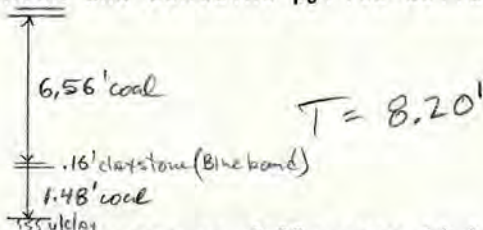 6,56' coal
T = 8.20'
.16' claystone (Blue band)
1.48' coal